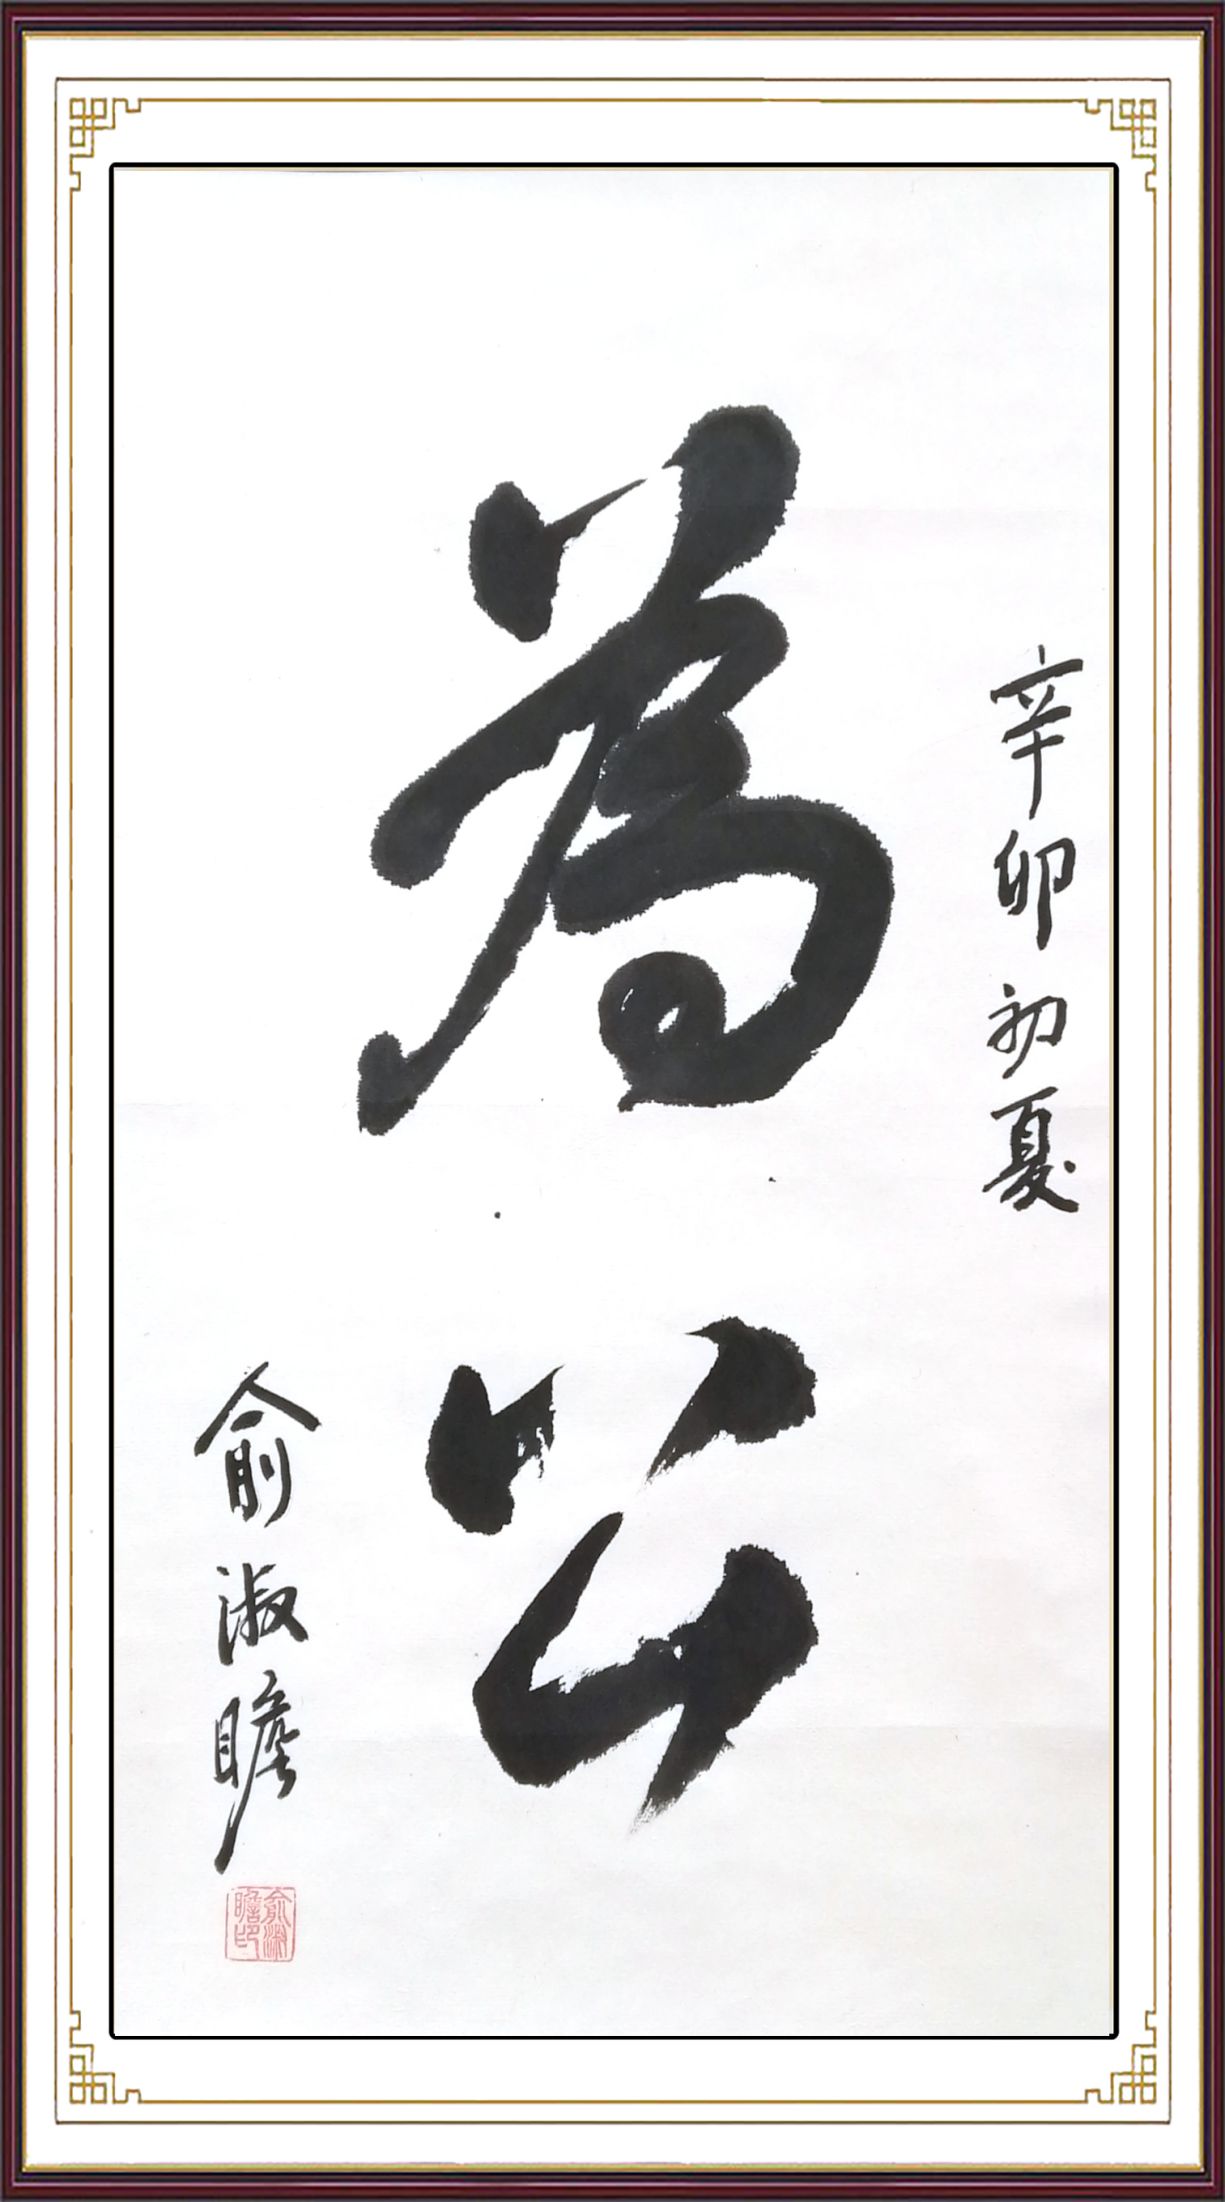 辛卯初夏
為公
俞淑瞻
俞淑瞻印